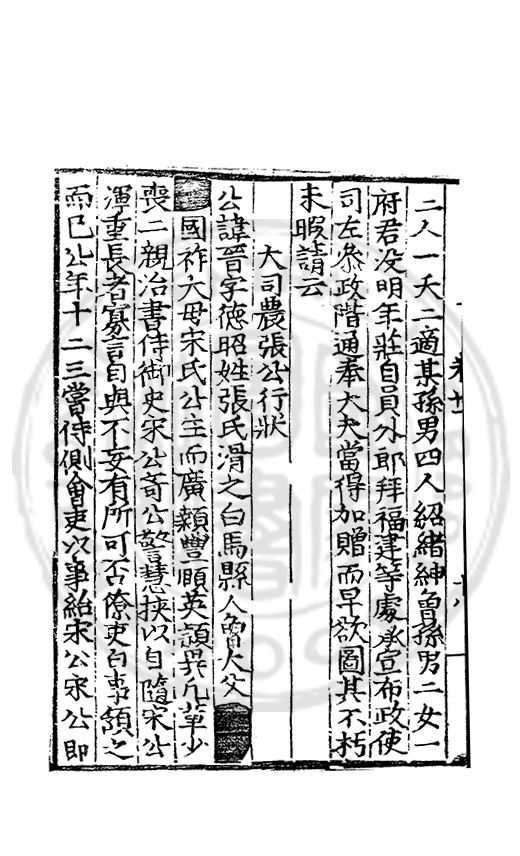 二人一夭二適某孫男四人紹緒紳魯孫男二女一
府君没明年莊自員外郎拜福建等處承宣布政使
司左叅政階通奉大夫當得加贈而早欲圖其不朽
未暇請云
大司農張公行狀
公諱晉字德昭姓張氏滑之白馬縣人魯大父
國祚大母宋氏公生而廣顙豐頤英韻異凡輩少
喪二親冶書侍御史宋公奇公警慧挾以自隨宋公
渾重長者寡言自與不妄有所可否僚吏白事頷之
而已公年十二三當侍側會吏以事紿宋公宋公即